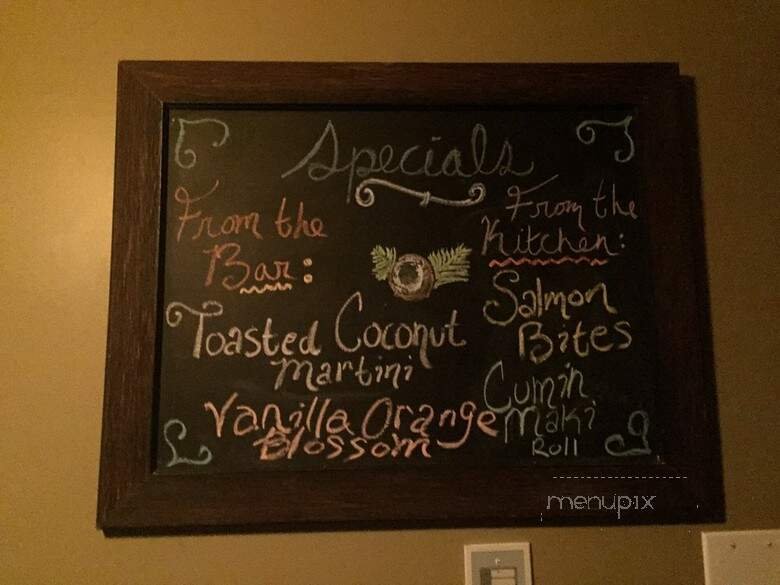 Specials
From the
Bar:
Toasted Coconut
Martini
Vanilla Orange
Blossom
From the
Kitchen:
Salmon
Bites
Cumin
Maki
Roll
menupix